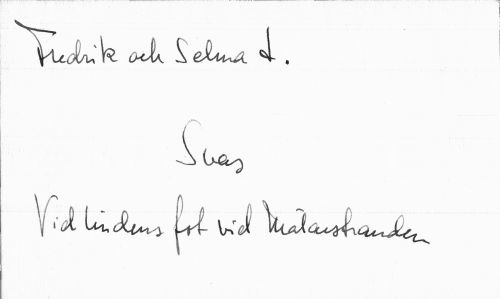 Fredrik och Selma L.
Svar
Vid lindens fot vid Mälarstranden